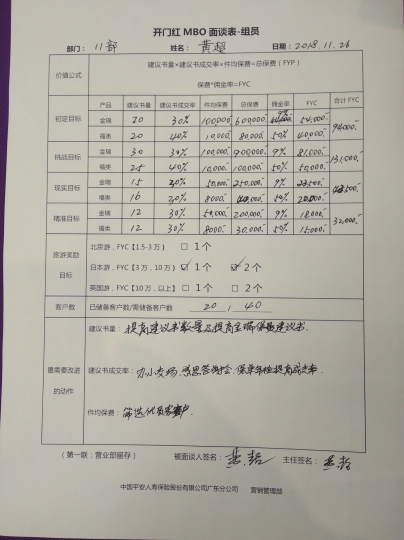 开门红 MBO 面谈表-组员
部门：11部 姓名：黄超 日期：2018.11.26
价值公式
建议书量×建议书成交率×件均保费=总保费（FYP）
保费*佣金率=FYC
产品 建议书量 建议书成交率 件均保费 总保费 佣金率 FYC 合计 FYC
初定目标
金瑞 20 30% 100,000 600,000 9% 54,000 94,000
福类 20 40% 10,000 80,000 50% 40,000
挑战目标
金瑞 30 30% 100,000 900,000 9% 81,000 131,000
福类 25 40% 10,000 100,000 50% 50,000
现实目标
金瑞 15 20% 50,000 250,000 9%
福类 16 20% 8000 50% 20,000
精准目标
金瑞 12 30% 50,000 200,000 9% 18,000 32,000
福类 12 30% 8000 30,000 50% 15,000
旅游奖励目标
北京游，FYC【1.5-3 万】 □ 1个
日本游，FYC【3 万，10 万】 ☑ 1个 ☑ 2个
英国游，FYC【10 万，以上】 □ 1个 □ 2个
客户数 已储备客户数/需储备客户数 20 / 40
最需要改进的动作
建议书量：提高建议书数量及提高金瑞保费建议书.
建议书成交率：办小交场.感恩答谢会.保单年检提高成交率.
件均保费：筛选优质客户.
（第一联：营业部留存） 被面谈人签名： 主任签名：
中国平安人寿保险股份有限公司广东分公司 营销管理部